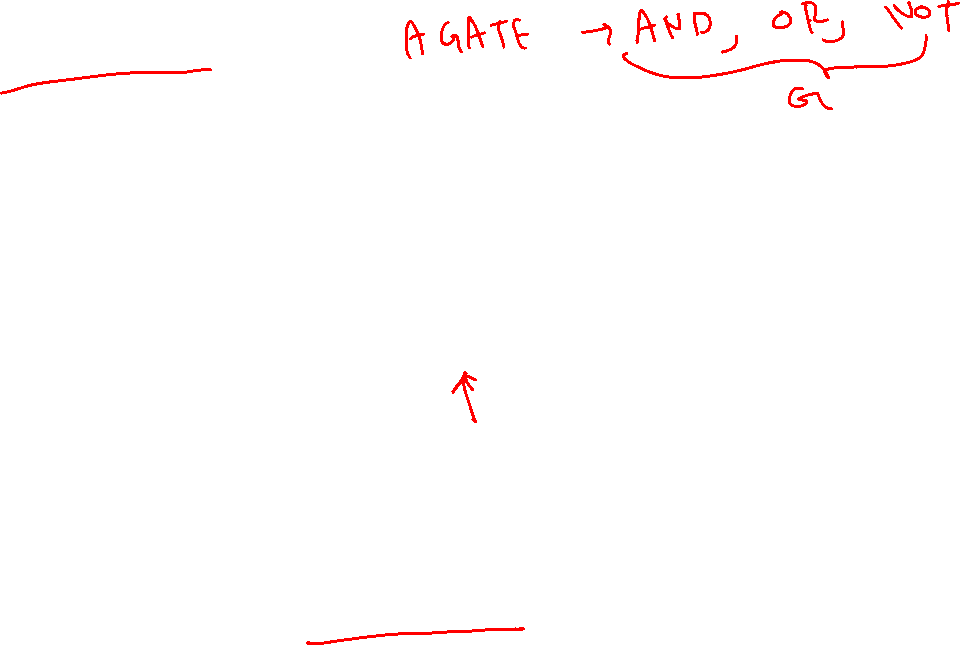 A GATE → AND, OR, NOT
G